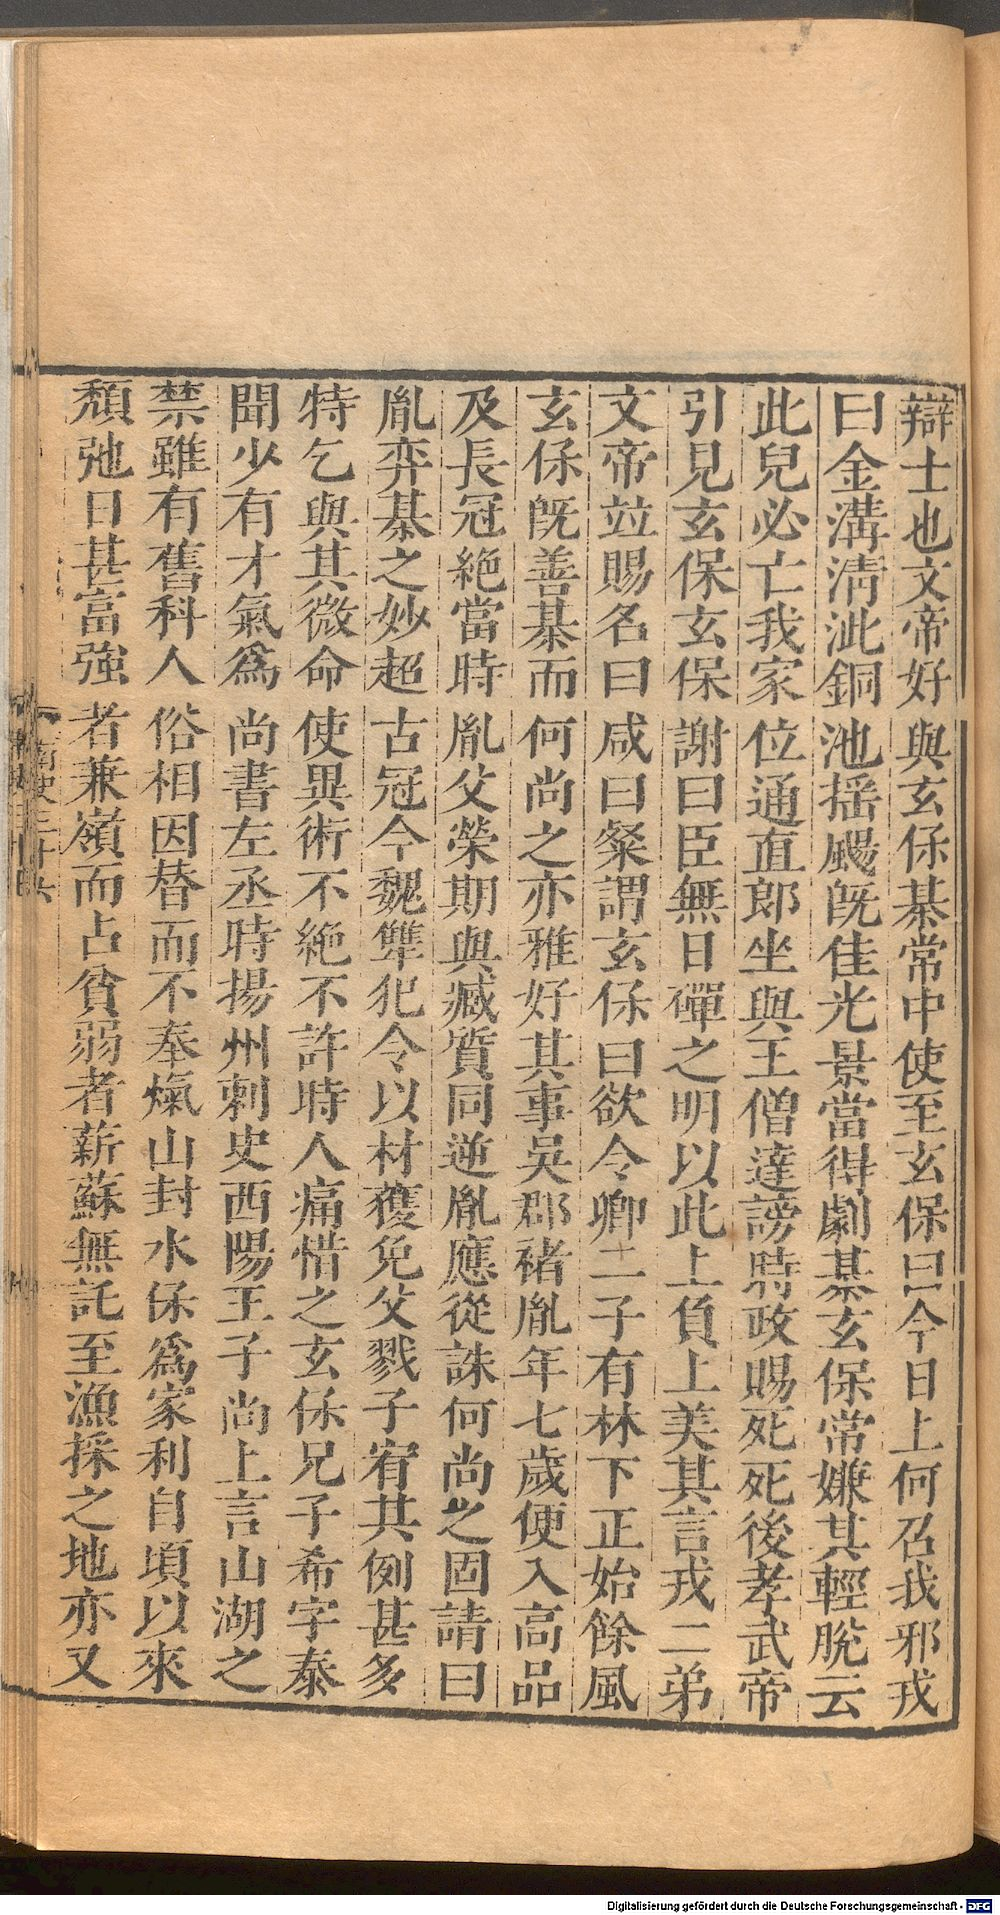 辯士也文帝好與玄保棊常中使至玄保曰今日上何召我邪戎
曰金溝清泚銅池揺颺既佳光景當得劇棊玄保常嫌其輕脫云
此兒必亡我家位通直郎坐與王僧達謗時政賜死死後孝武帝
引見玄保玄保謝曰臣無日磾之明以此上負上美其言戎二弟
文帝竝賜名曰咸曰粲謂玄保曰欲令卿二子有林下正始餘風
玄保旣善棊而何尚之亦雅好其事吳郡褚胤年七歲便入高品
及長冠絶當時胤父榮期與臧質同逆胤應從誅何尚之固請曰
胤弈棊之妙超古冠今魏犨犯令以材獲免父戮子宥其例甚多
特乞與其微命使異術不絶不許時人痛惜之玄保兄子希字泰
聞少有才氣爲尚書左丞時揚州刺史西陽王子尚上言山湖之
禁雖有舊科人俗相因替而不奉熂山封水保爲家利自頃以來
頹弛日甚富強者兼嶺而占貧弱者薪蘇無託至漁採之地亦又
南史三十六
Digitalisierung gefördert durch die Deutsche Forschungsgemeinschaft - DFG